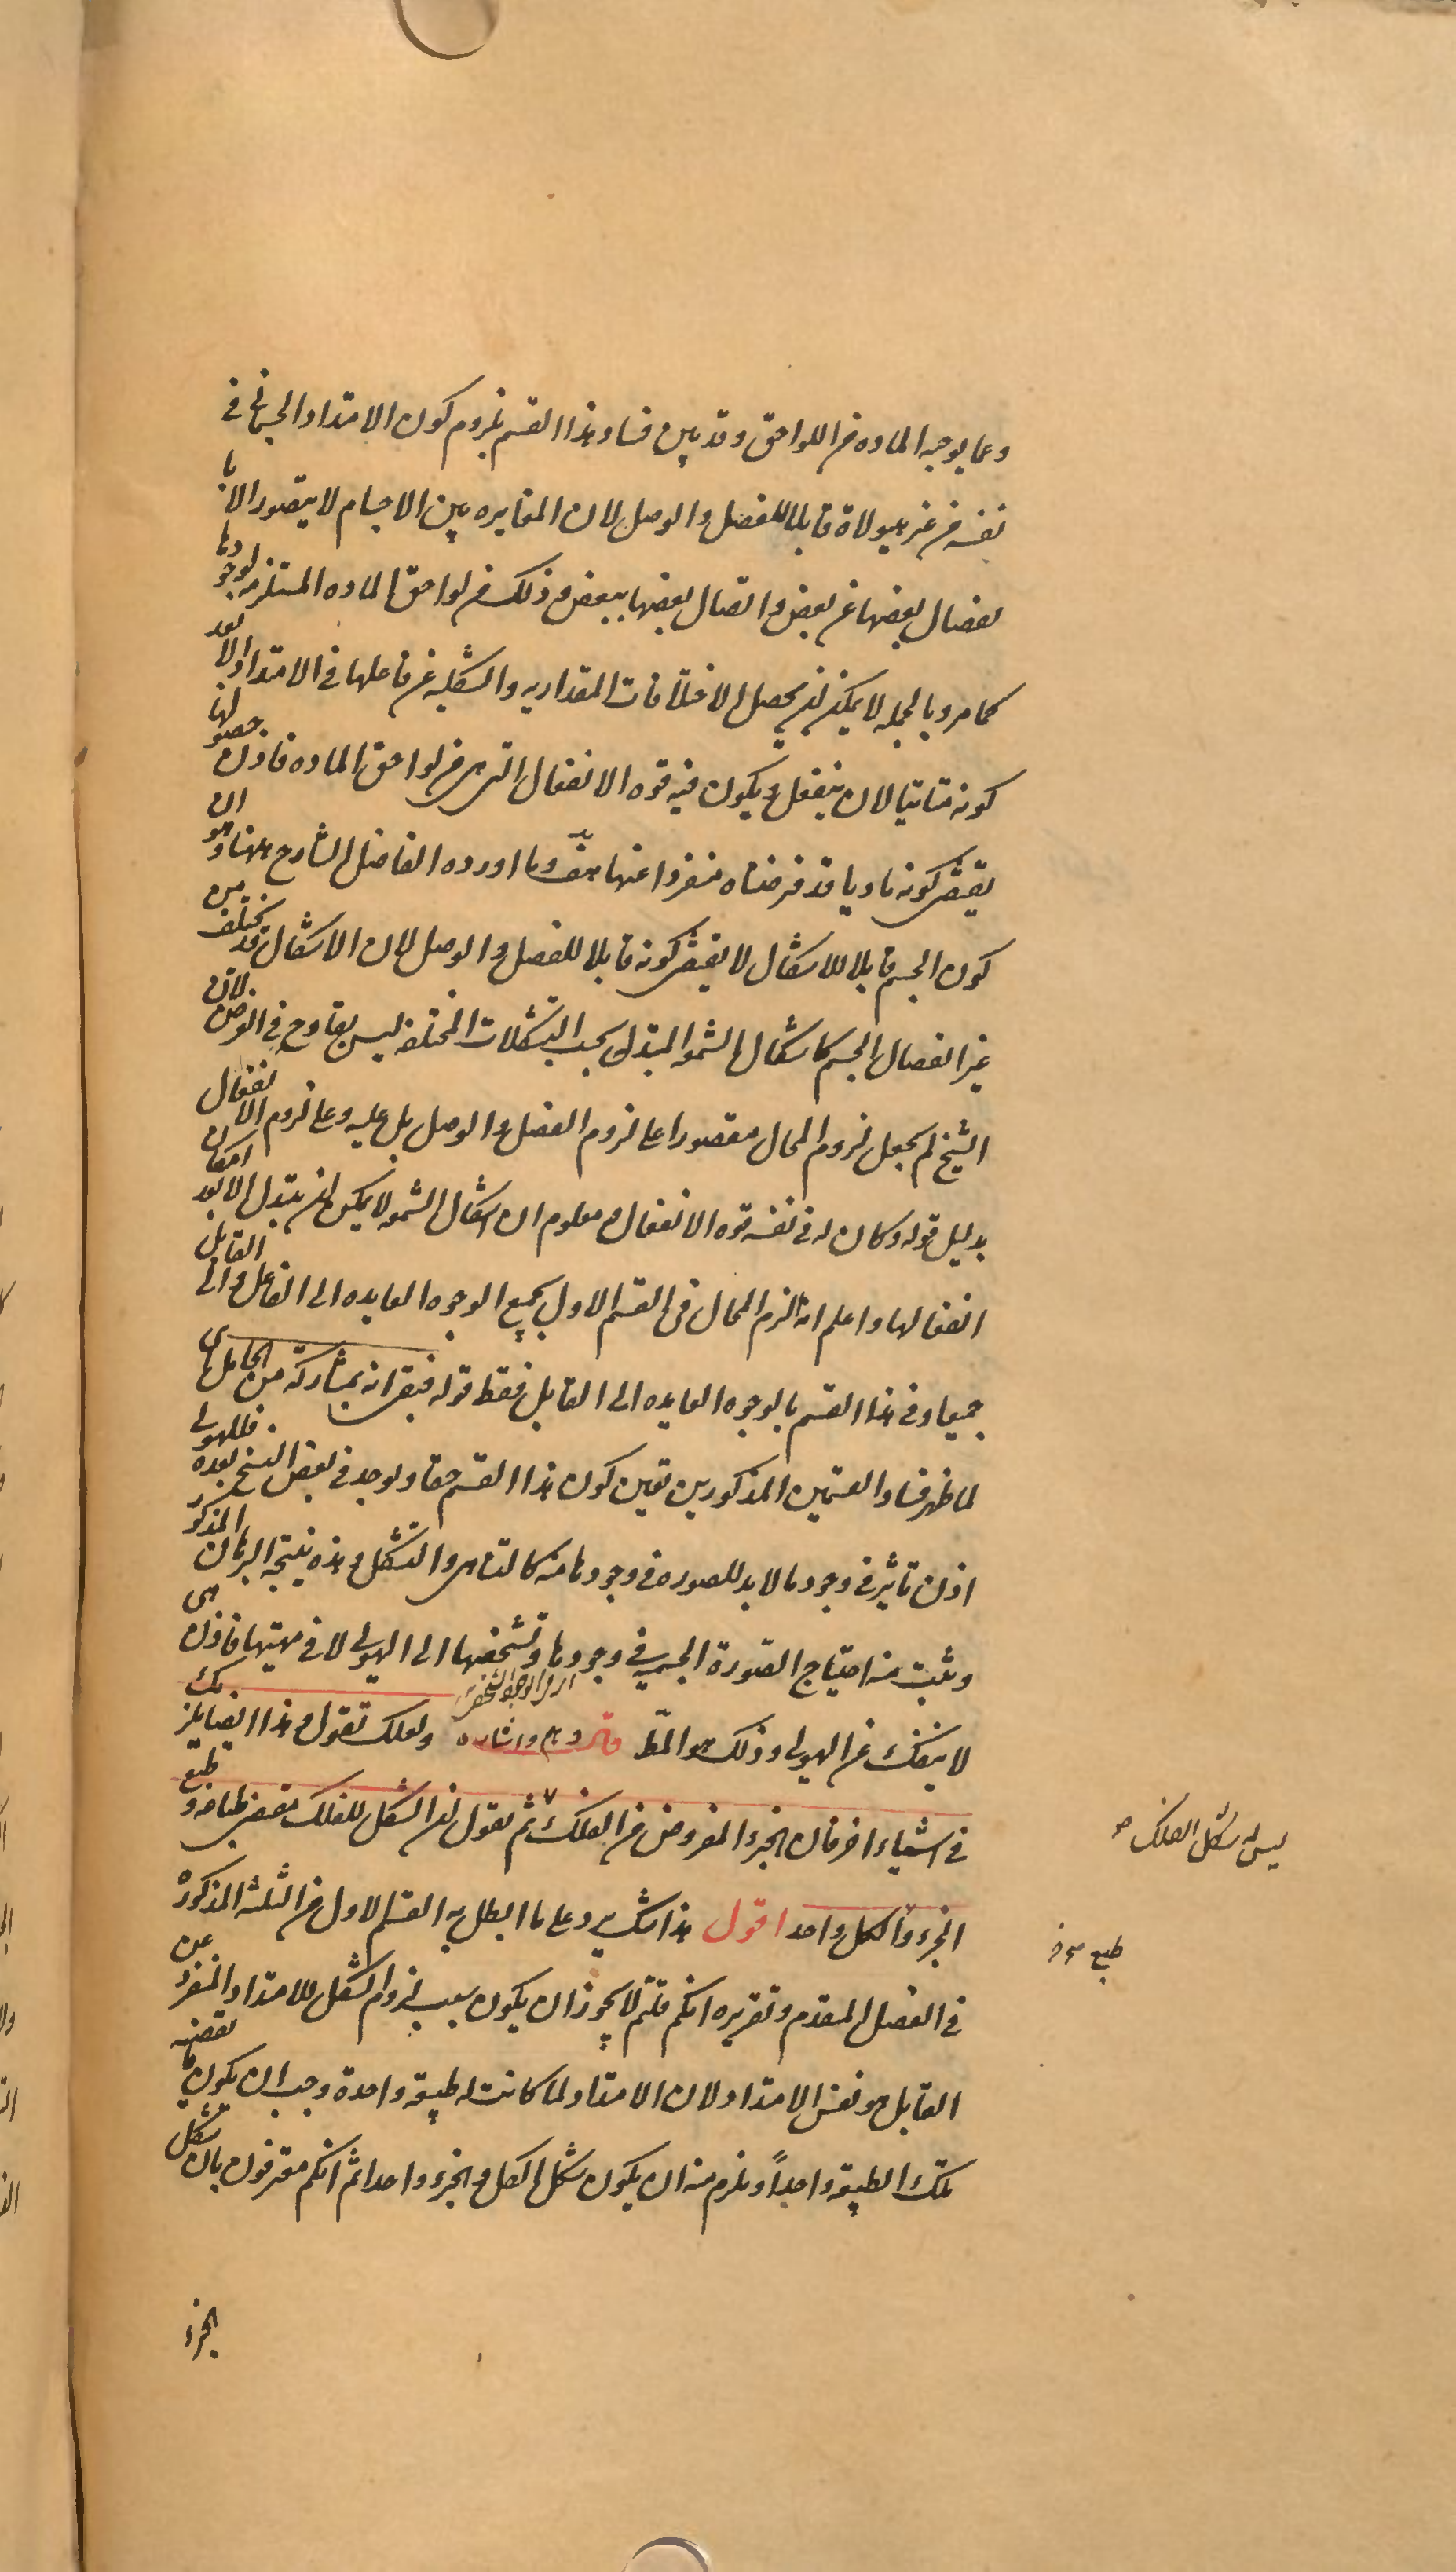 وعما يوجبه الماده من اللواحق وقد يبين فساد هذا القسم بلزوم كون الامتداد الجسمانى فى
نفسه من غير هيولاة قابلا للفصل والوصل لان المغايره بين الاجسام لا يتصور الا با
نفصال بعضها عن بعض واتصال بعضها ببعض وذلك من لواحق الماده المستلزمه لوجودها
كما مر وبالجمله لا يمكن ان يحصل الاختلافات المقداريه والشكليه عن فاعلها فى الامتداد الا بعد
كونه متاتيا لان ينفعل ويكون فيه قوه الانفعال التى هى من لواحق الماده فاذن حصولها
يقتضى كونه ماديا وقد فرضناه منفردا عنها هف وما اورده الفاضل الشارح ههنا وهو ان
كون الجسم قابلا للاشكال لا يقتضى كونه قابلا للفصل والوصل لان الاشكال قد تختلف من
غير انفصال الجسم كاشكال الشمعه المتبدله بحسب التشكلات المختلفه ليس بقادح فى الغرض لان
الشيخ لم يجعل لزوم المحال مقصورا على لزوم الفصل والوصل بل عليه وعلى لزوم الانفعال
بدليل قوله وكان له فى نفسه قوه الانفعال ومعلوم ان اشكال الشمعه لا يمكن ان يتبدل الا بعد امكان
انفعالها واعلم انه الزم المحال فى القسم الاول بجميع الوجوه العايده الى الفاعل والى القابل
جميعا وفى هذا القسم بالوجوه العايده الى القابل فقط قوله فبقى انه بمشاركة من الحامل اى
لما ظهر فساد القسمين المذكورين تعين كون هذا القسم حقا ويوجد فى بعض النسخ بعده فللهيولى
اذن تاثير فى وجود ما لا بد للصوره فى وجودها منه كالتناهى والتشكل وهذه نتيجة البرهان المذكور
ويثبت منه احتياج الصورة الجسميه فى وجودها وتشخصها الى الهيولى لا فى مهيتها فاذن هى
لا ينفك عن الهيولى وذلك هو المط قال وهم واشاره ولعلك تقول وهذا ايضا يلزمك
فى اشياء اخر فان الجزء المفروض من الفلك ثم تقول ان الشكل للفلك مقتضى طباعه وطبع
ليس له شكل الفلك صح
الجزء والكل واحد اقول هذا شك يرد على ما ابطل به القسم الاول من الثلثه المذكوره
فى الفصل المقدم وتقريره انكم قلتم لا يجوز ان يكون سبب لزوم الشكل للامتداد المنفرد عن
القابل هو نفس الامتداد لان الامتداد لما كانت له طبيعة واحدة وجب ان يكون ما تقتضيه
تلك الطبيعة واحداً ويلزم منه ان يكون شكل الكل والجزء واحدا ثم انكم معترفون بان شكل
الجزء